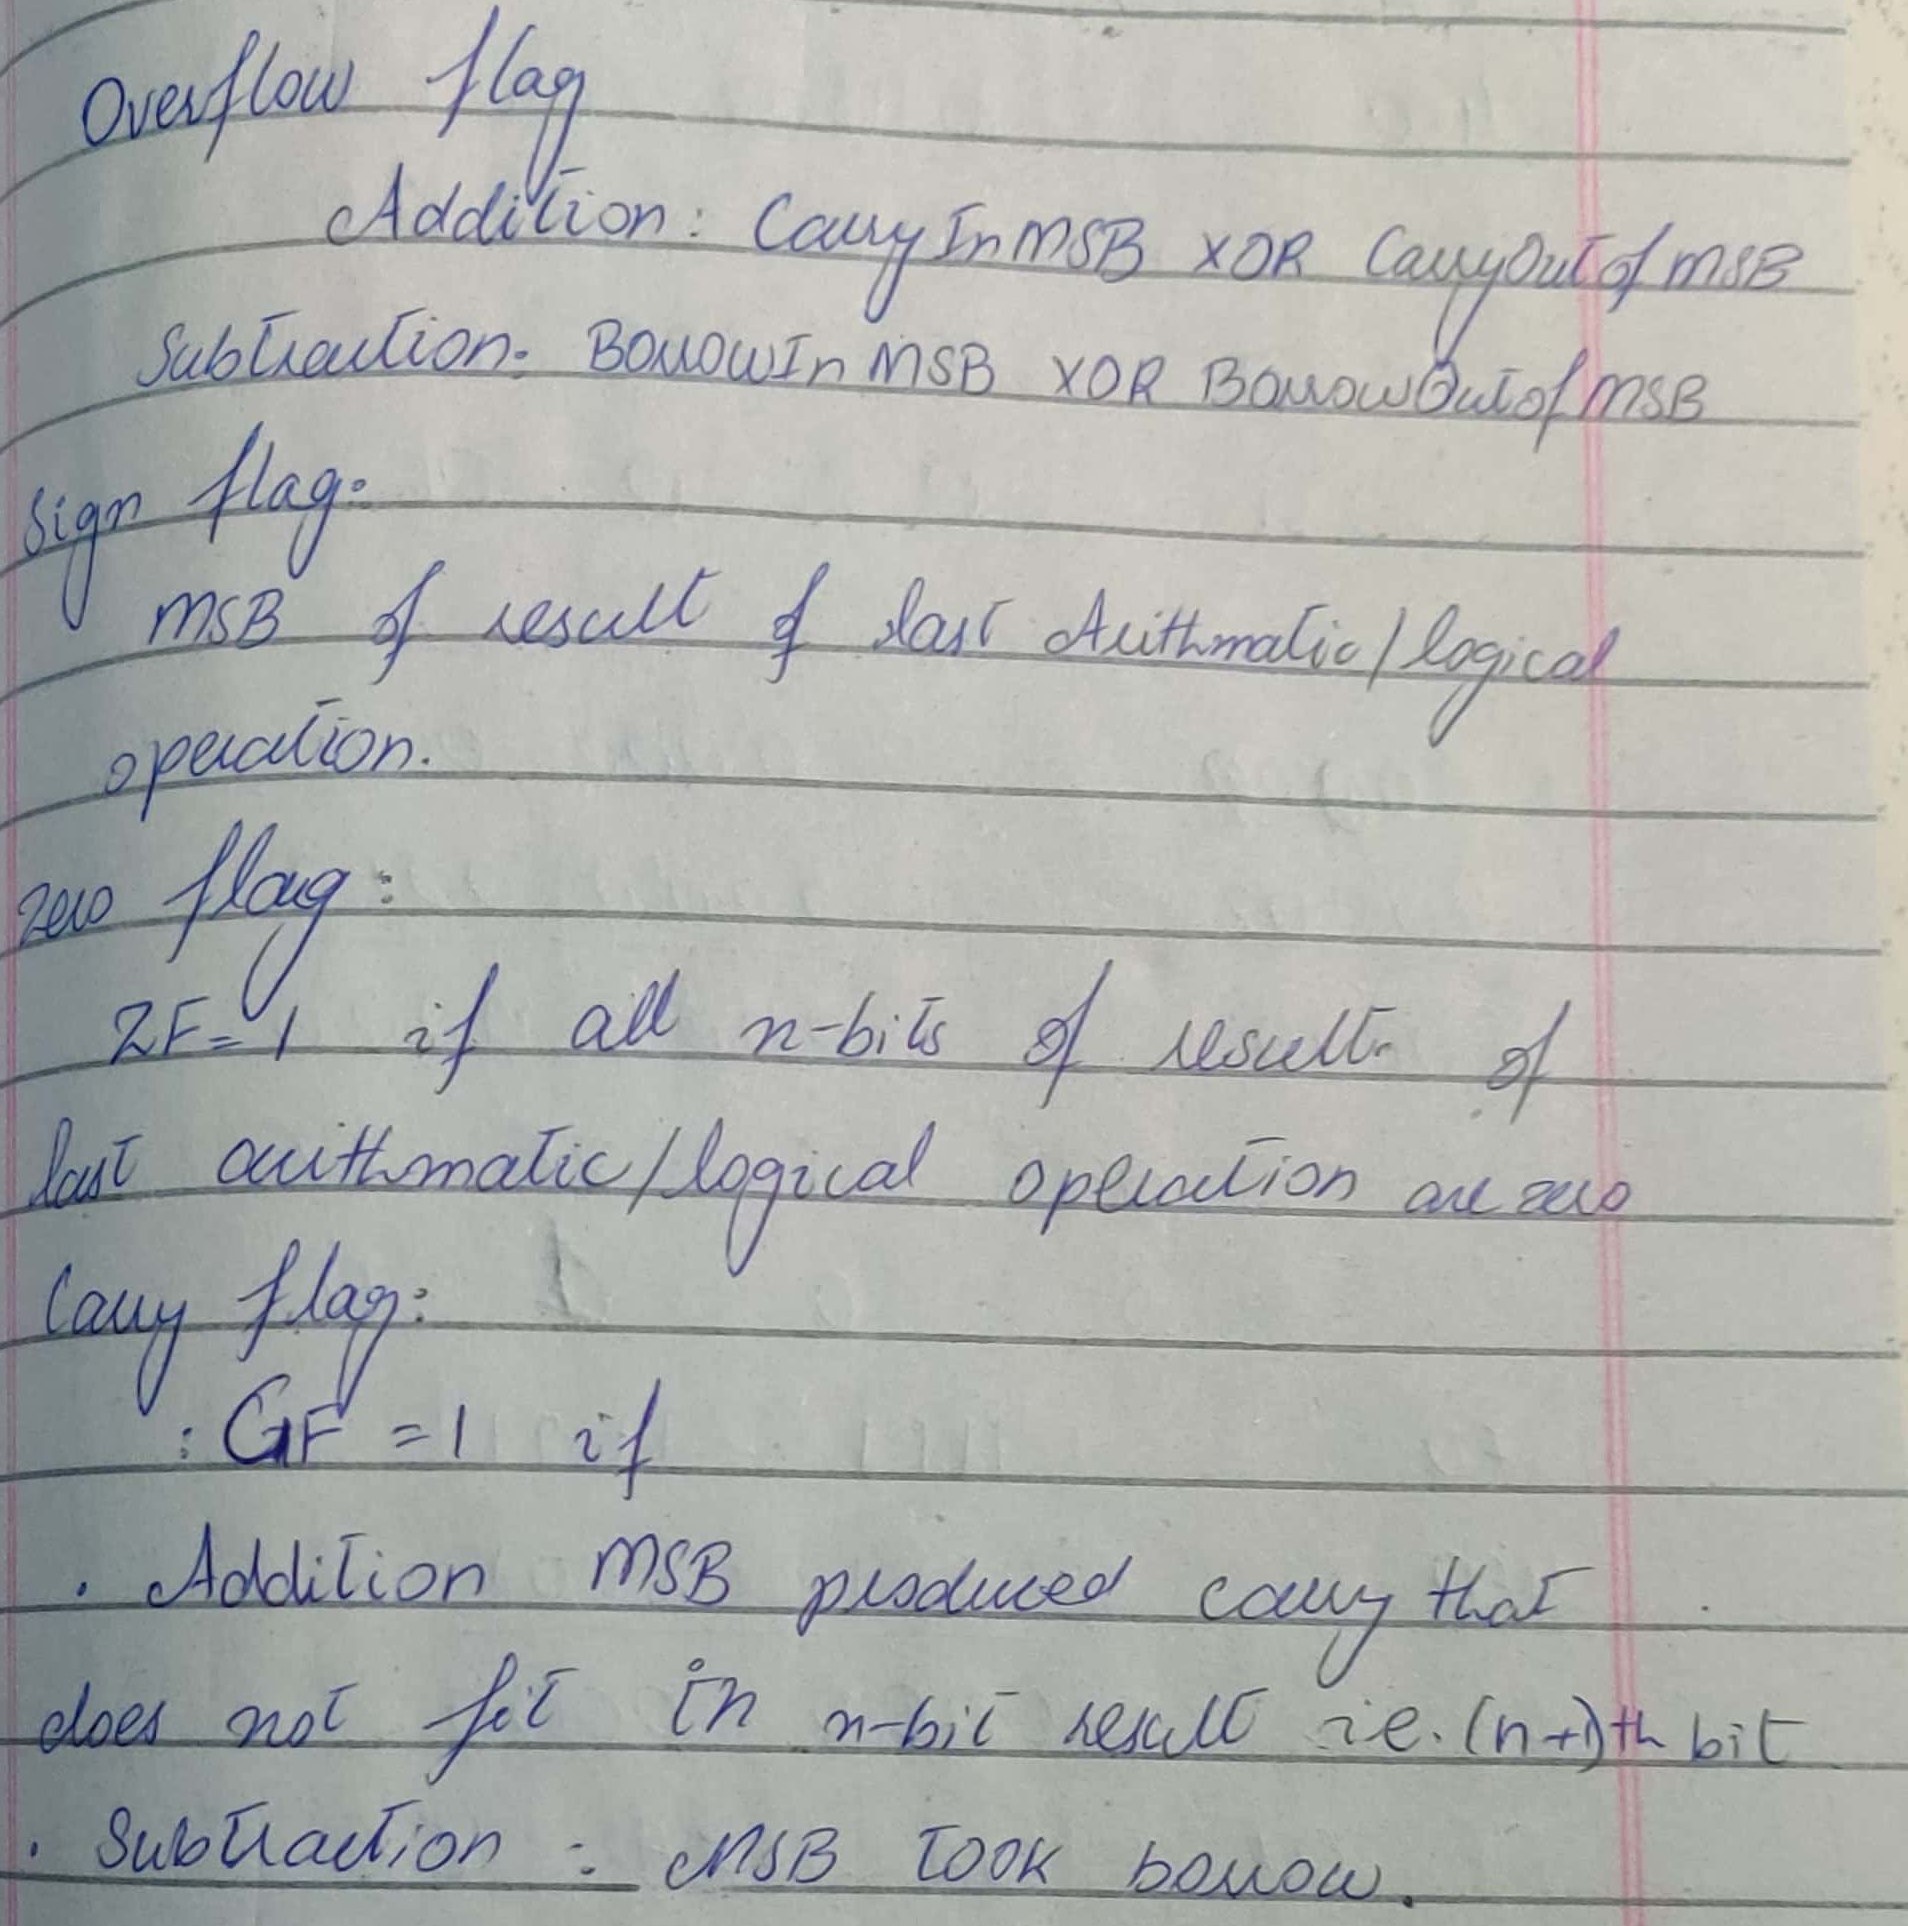 Overflow flag
Addition: CarryInMSB XOR CarryOutofMSB
Subtraction: BorrowIn MSB XOR BorrowOutofMSB
Sign flag:
MSB of result of last Arithmatic/logical
operation.
zero flag:
ZF=1 if all n-bits of result of
last arithmatic/logical operation are zero
Carry flag:
: CF =1 if
. Addition MSB produced carry that
does not fit in n-bit result ie. (n+1)th bit
. Subtraction : MSB took borrow.